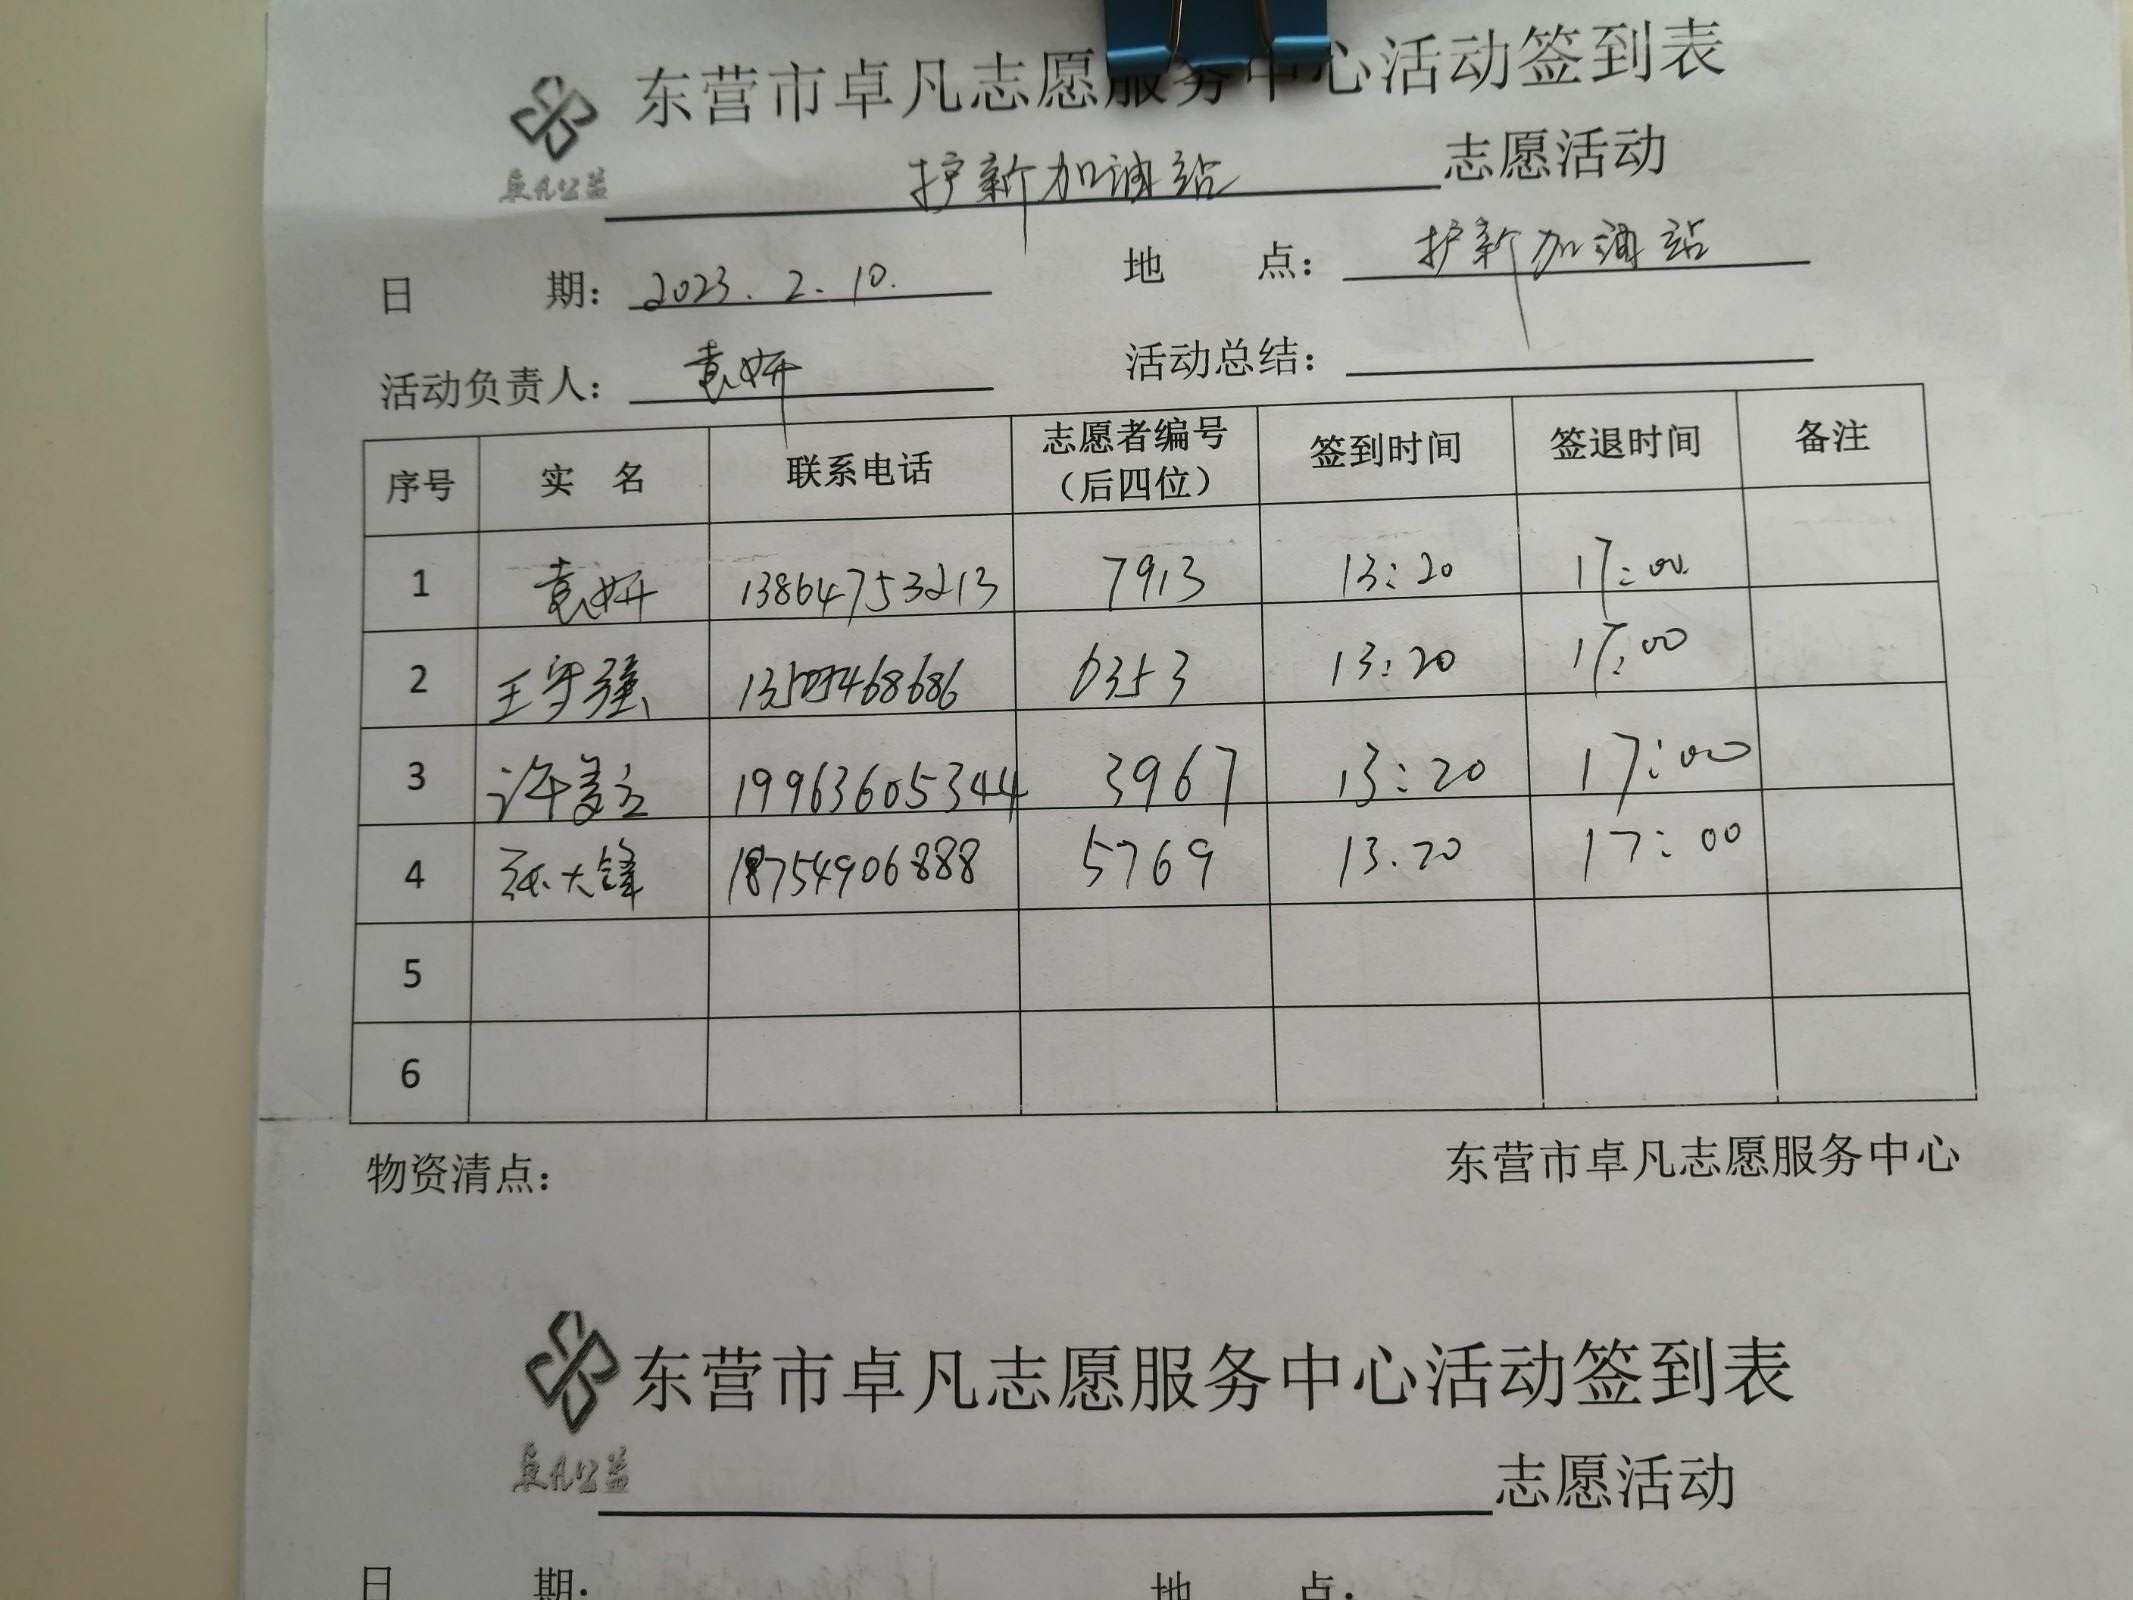 东营市卓凡志愿服务中心活动签到表
卓凡公益 护新加油站 志愿活动
日 期： 2023.2.10. 地 点： 护新加油站
活动负责人： 袁妍 活动总结：
序号 实 名 联系电话 志愿者编号（后四位） 签到时间 签退时间 备注
1 袁妍 13864753213 7913 13:20 17:00
2 王守强 6353 13:20 17:00
3 许 19963605344 3967 13:20 17:00
4 张大锋 18754906888 5769 13.20 17:00
5
6
物资清点： 东营市卓凡志愿服务中心
东营市卓凡志愿服务中心活动签到表
卓凡公益 志愿活动
日 期： 地 点：